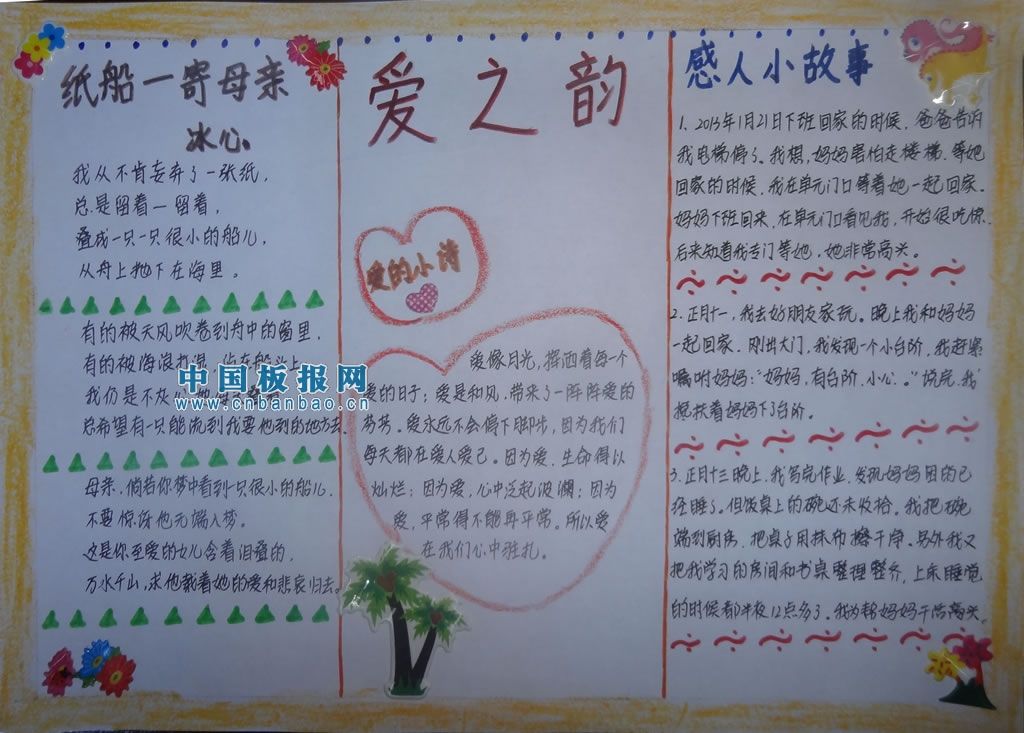 纸船一寄母亲
冰心
我从不肯妄弃了一张纸，
总是留着一留着，
叠成一只一只很小的船儿，
从舟上抛下在海里。
有的被天风吹卷到舟中的窗里，
有的被海浪打湿，
我仍是不灰心
总希望有一只能流到我要他到的地方去
母亲，倘若你梦中看到一只很小的船儿，
不要惊讶他无端入梦。
这是你至爱的女儿含着泪叠的，
万水千山，求他载着她的爱和悲哀归去。
爱之韵
爱的小诗
爱像月光，挥洒着每一个
爱的日子；爱是和风，带来了一阵阵爱的
芬芳。爱永远不会停下脚步，因为我们
每天都在爱人爱己。因为爱，生命得以
灿烂；因为爱，心中泛起波澜；因为
爱，平常得不能再平常。所以爱
在我们心中驻扎。
感人小故事
1、2013年1月21日下班回家的时候，爸爸告诉
我电梯停了。我想，妈妈害怕走楼梯，等她
回家的时候，我在单元门口等着她一起回家。
妈妈下班回来，在单元门口看见我，开始很吃惊，
后来知道我专门等她，她非常高兴。
2、正月十一，我去好朋友家玩。晚上我和妈妈
一起回家，刚出大门，我发现一个小台阶，我赶紧
嘱咐妈妈：“妈妈，有台阶，小心。”说完，我
搀扶着妈妈下了台阶。
3、正月十三晚上，我写完作业，发现妈妈困的已
经睡了。但饭桌上的碗还未收拾。我把碗
端到厨房，把桌子用抹布擦干净。另外我又
把我学习的房间和书桌整理整齐，上床睡觉
的时候都半夜12点多了。我为帮妈妈干活高兴。
中国板报网
www.cnbanbao.cn